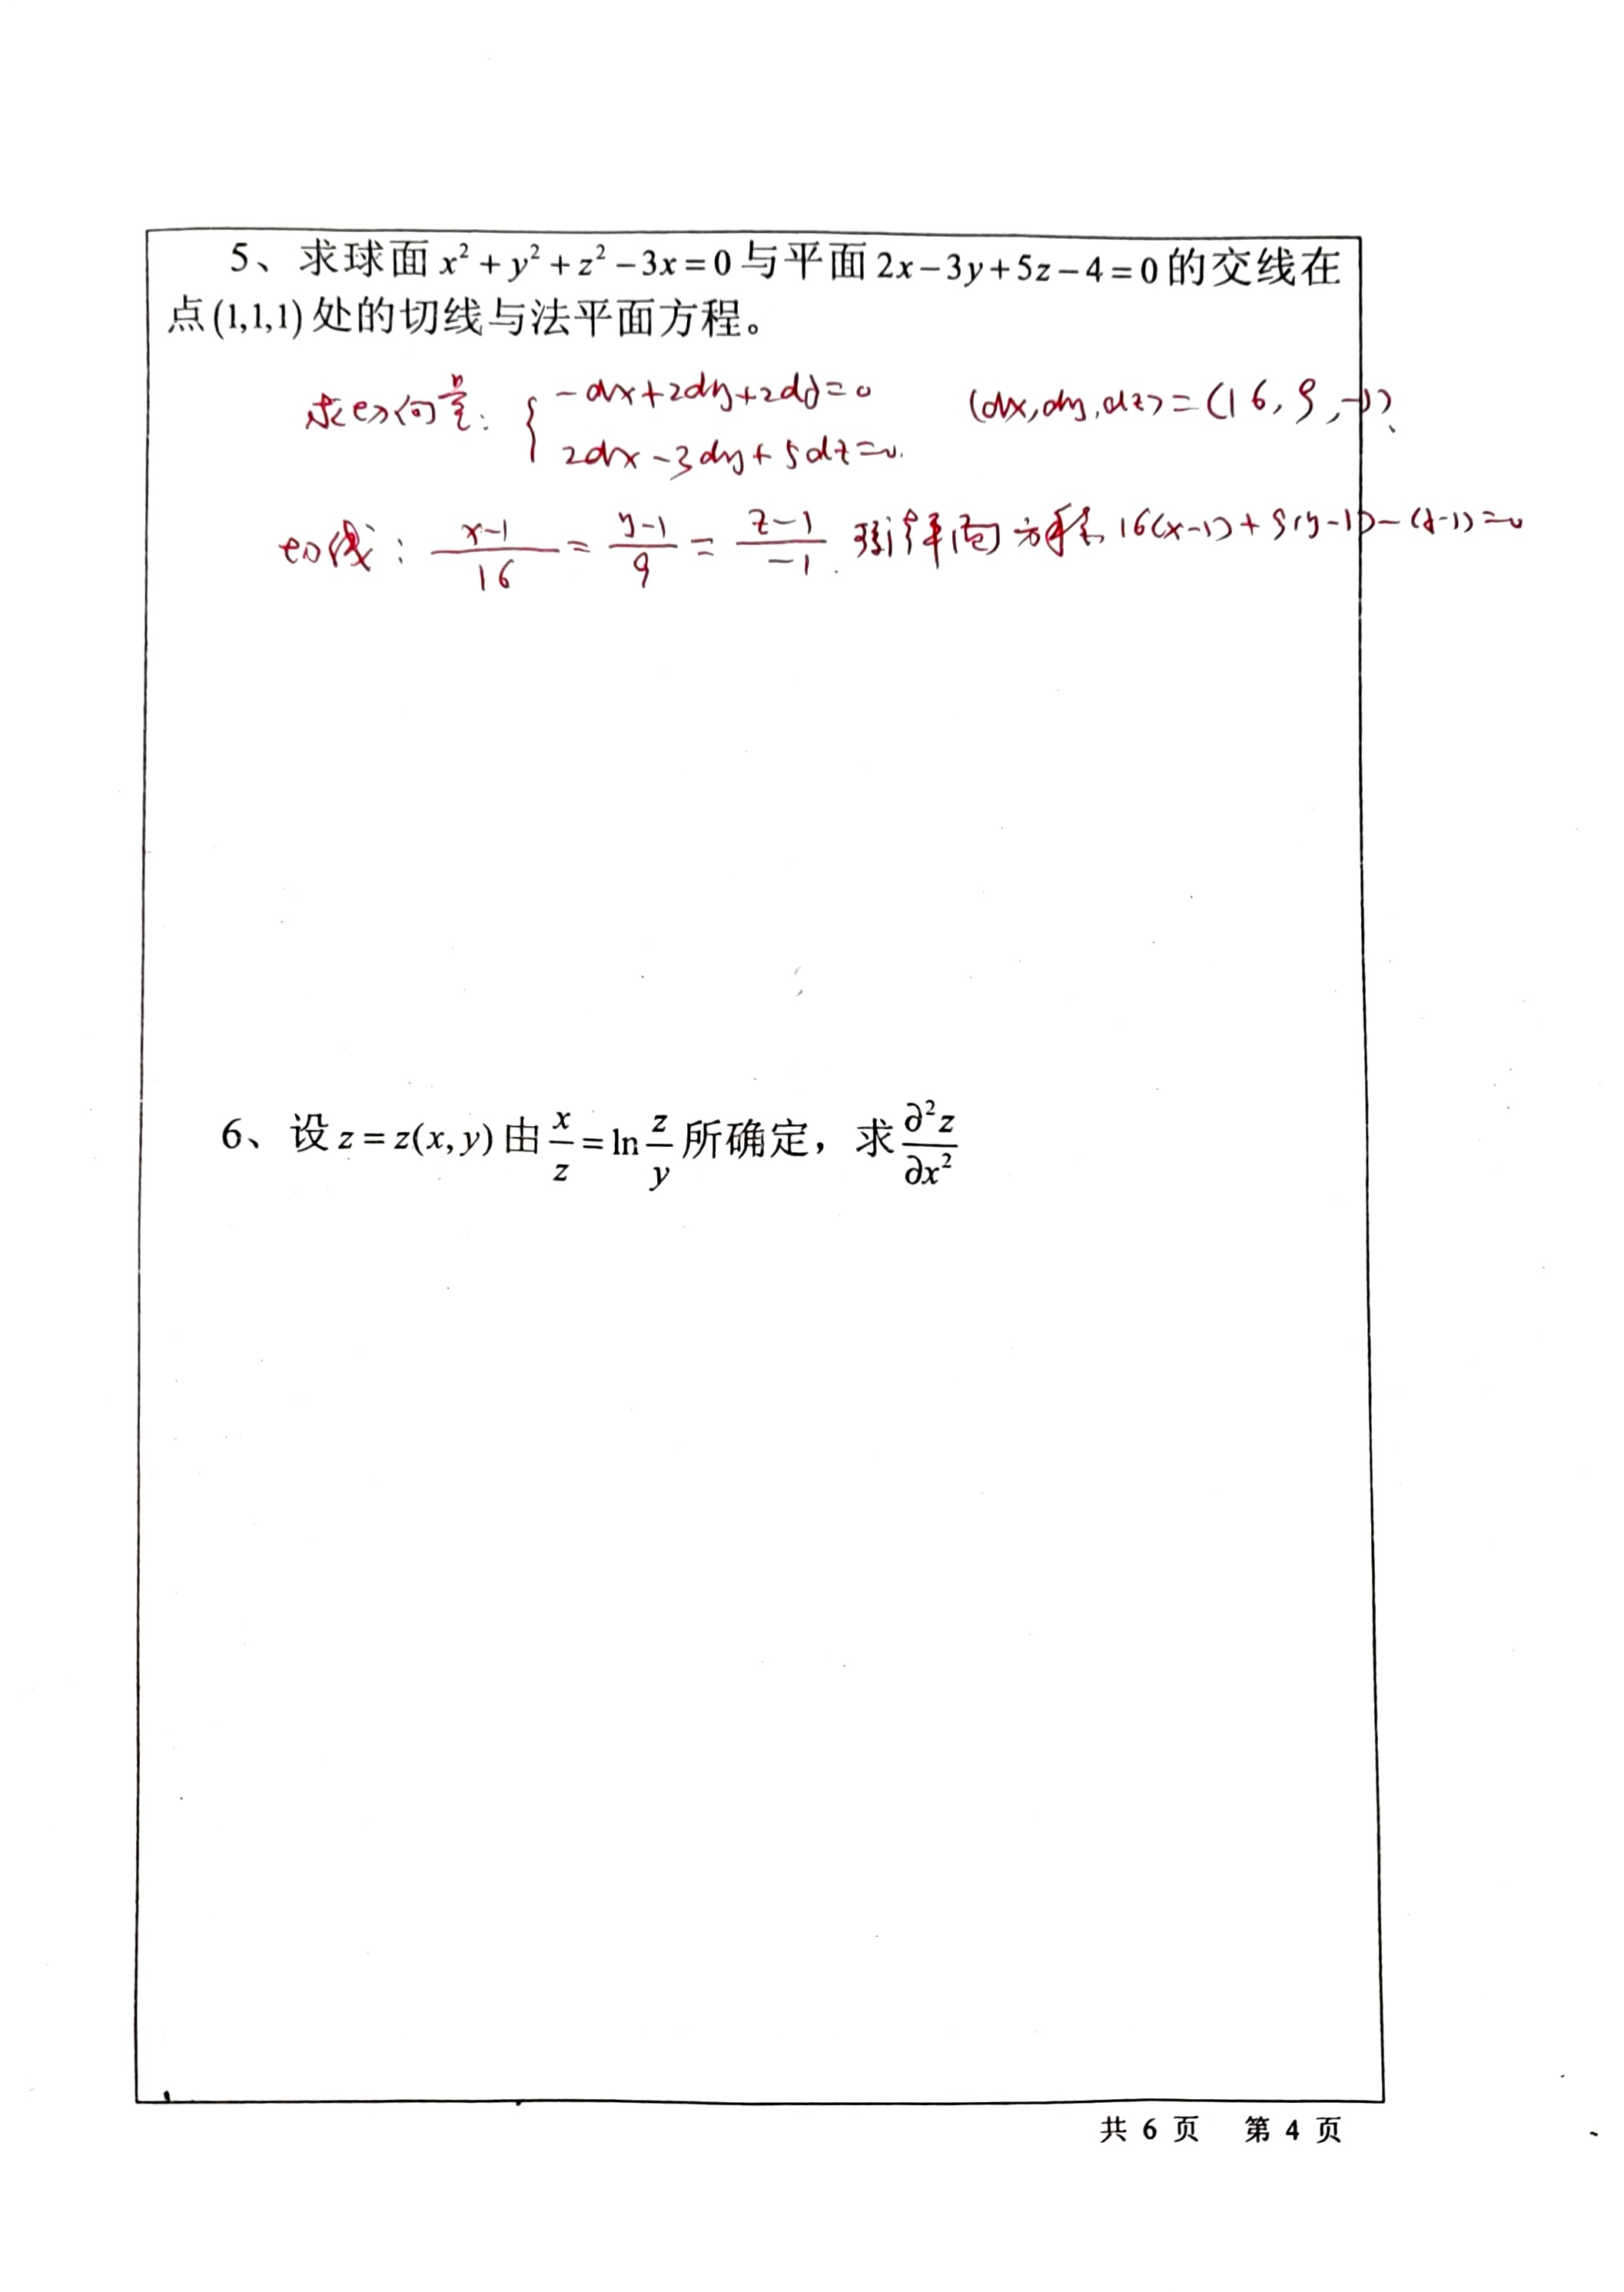 5、求球面 x² + y² + z² − 3x = 0 与平面 2x − 3y + 5z − 4 = 0 的交线在
点(1,1,1)处的切线与法平面方程。
求切向量: { −dx+2dy+2dz=0 (dx,dy,dz)=(16,9,−1)
2dx−3dy+5dz=0.
切线: (x−1)/16 = (y−1)/9 = (z−1)/−1. 平面方程 16(x−1)+9(y−1)−(z−1)=0
6、设 z = z(x, y) 由 x/z = ln z/y 所确定，求 ∂²z/∂x²
共 6 页 第 4 页